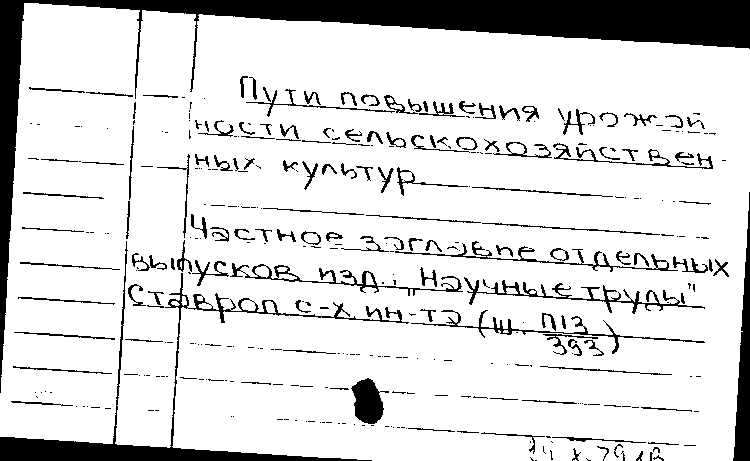 Пути повышения урожай
ности сельскохозяйствен-
ных культур.
Частное заглавие отдельных
выпусков изд.: „Научные труды"
Ставроп с-х ин-та (ш. П13/393)